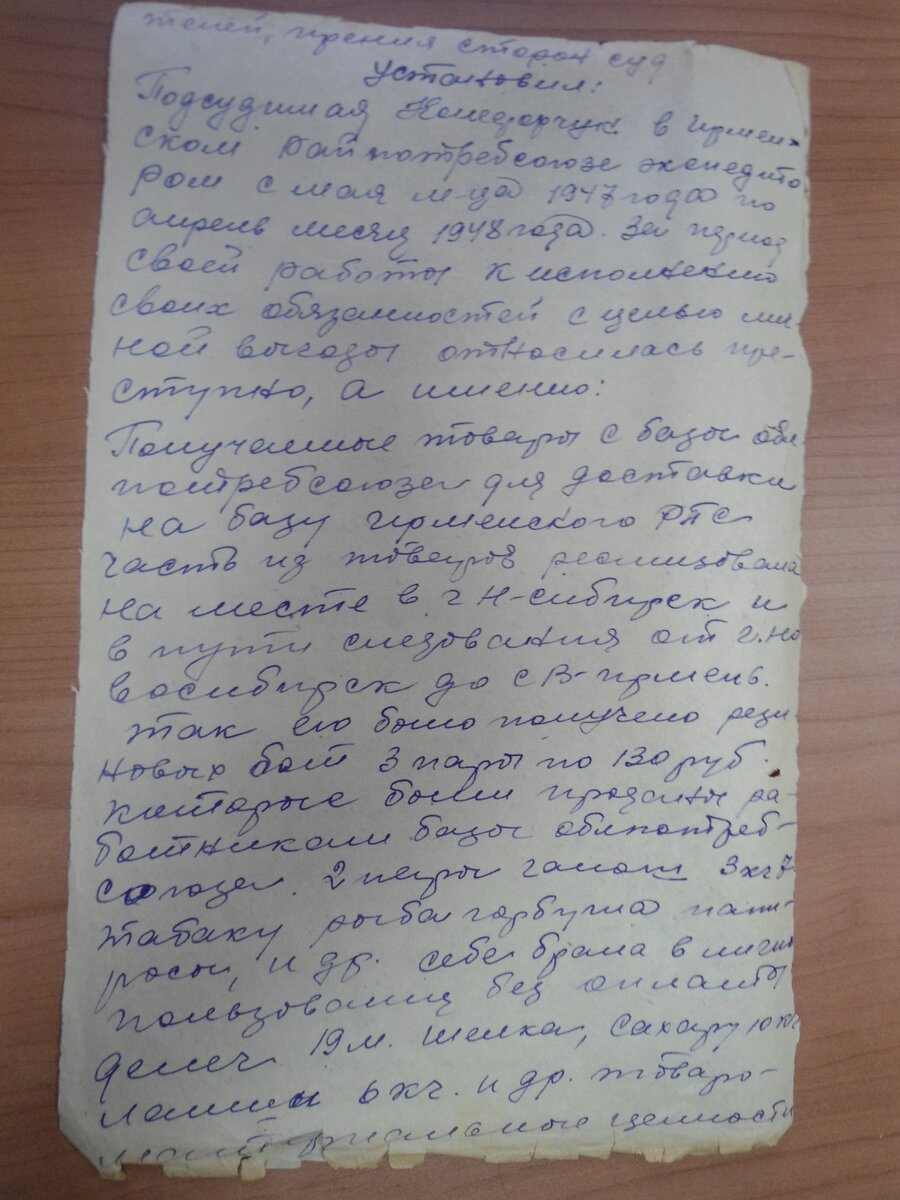 телей, прения сторон суд
установил:
Подсудимая в Ирмен-
ском райпотребсоюзе экспедито-
ром с мая м-ца 1947 года по
апрель месяц 1948 года. За период
своей работы к исполнению
своих обязанностей с целью лич-
ной выгоды относилась пре-
ступно, а именно:
Получаемые товары с базы обл-
потребсоюза для доставки
на базу Ирменского РПС
часть из товаров реализовала
на месте в г Н-сибирск и
в пути следования от г. Но
восибирск до с В-Ирмень.
Так ею было получено рези-
новых бот 3 пары по 130 руб.
которые были проданы ра-
ботникам базы облпотреб-
союза. 2 пары галош 3 кг
табаку рыба горбуша папи-
росы, и др. себе брала в личн
пользование без оплаты
денег 19 м. шелка, сахару 10 кг
6 кг. и др. товаро-
материальные ценности